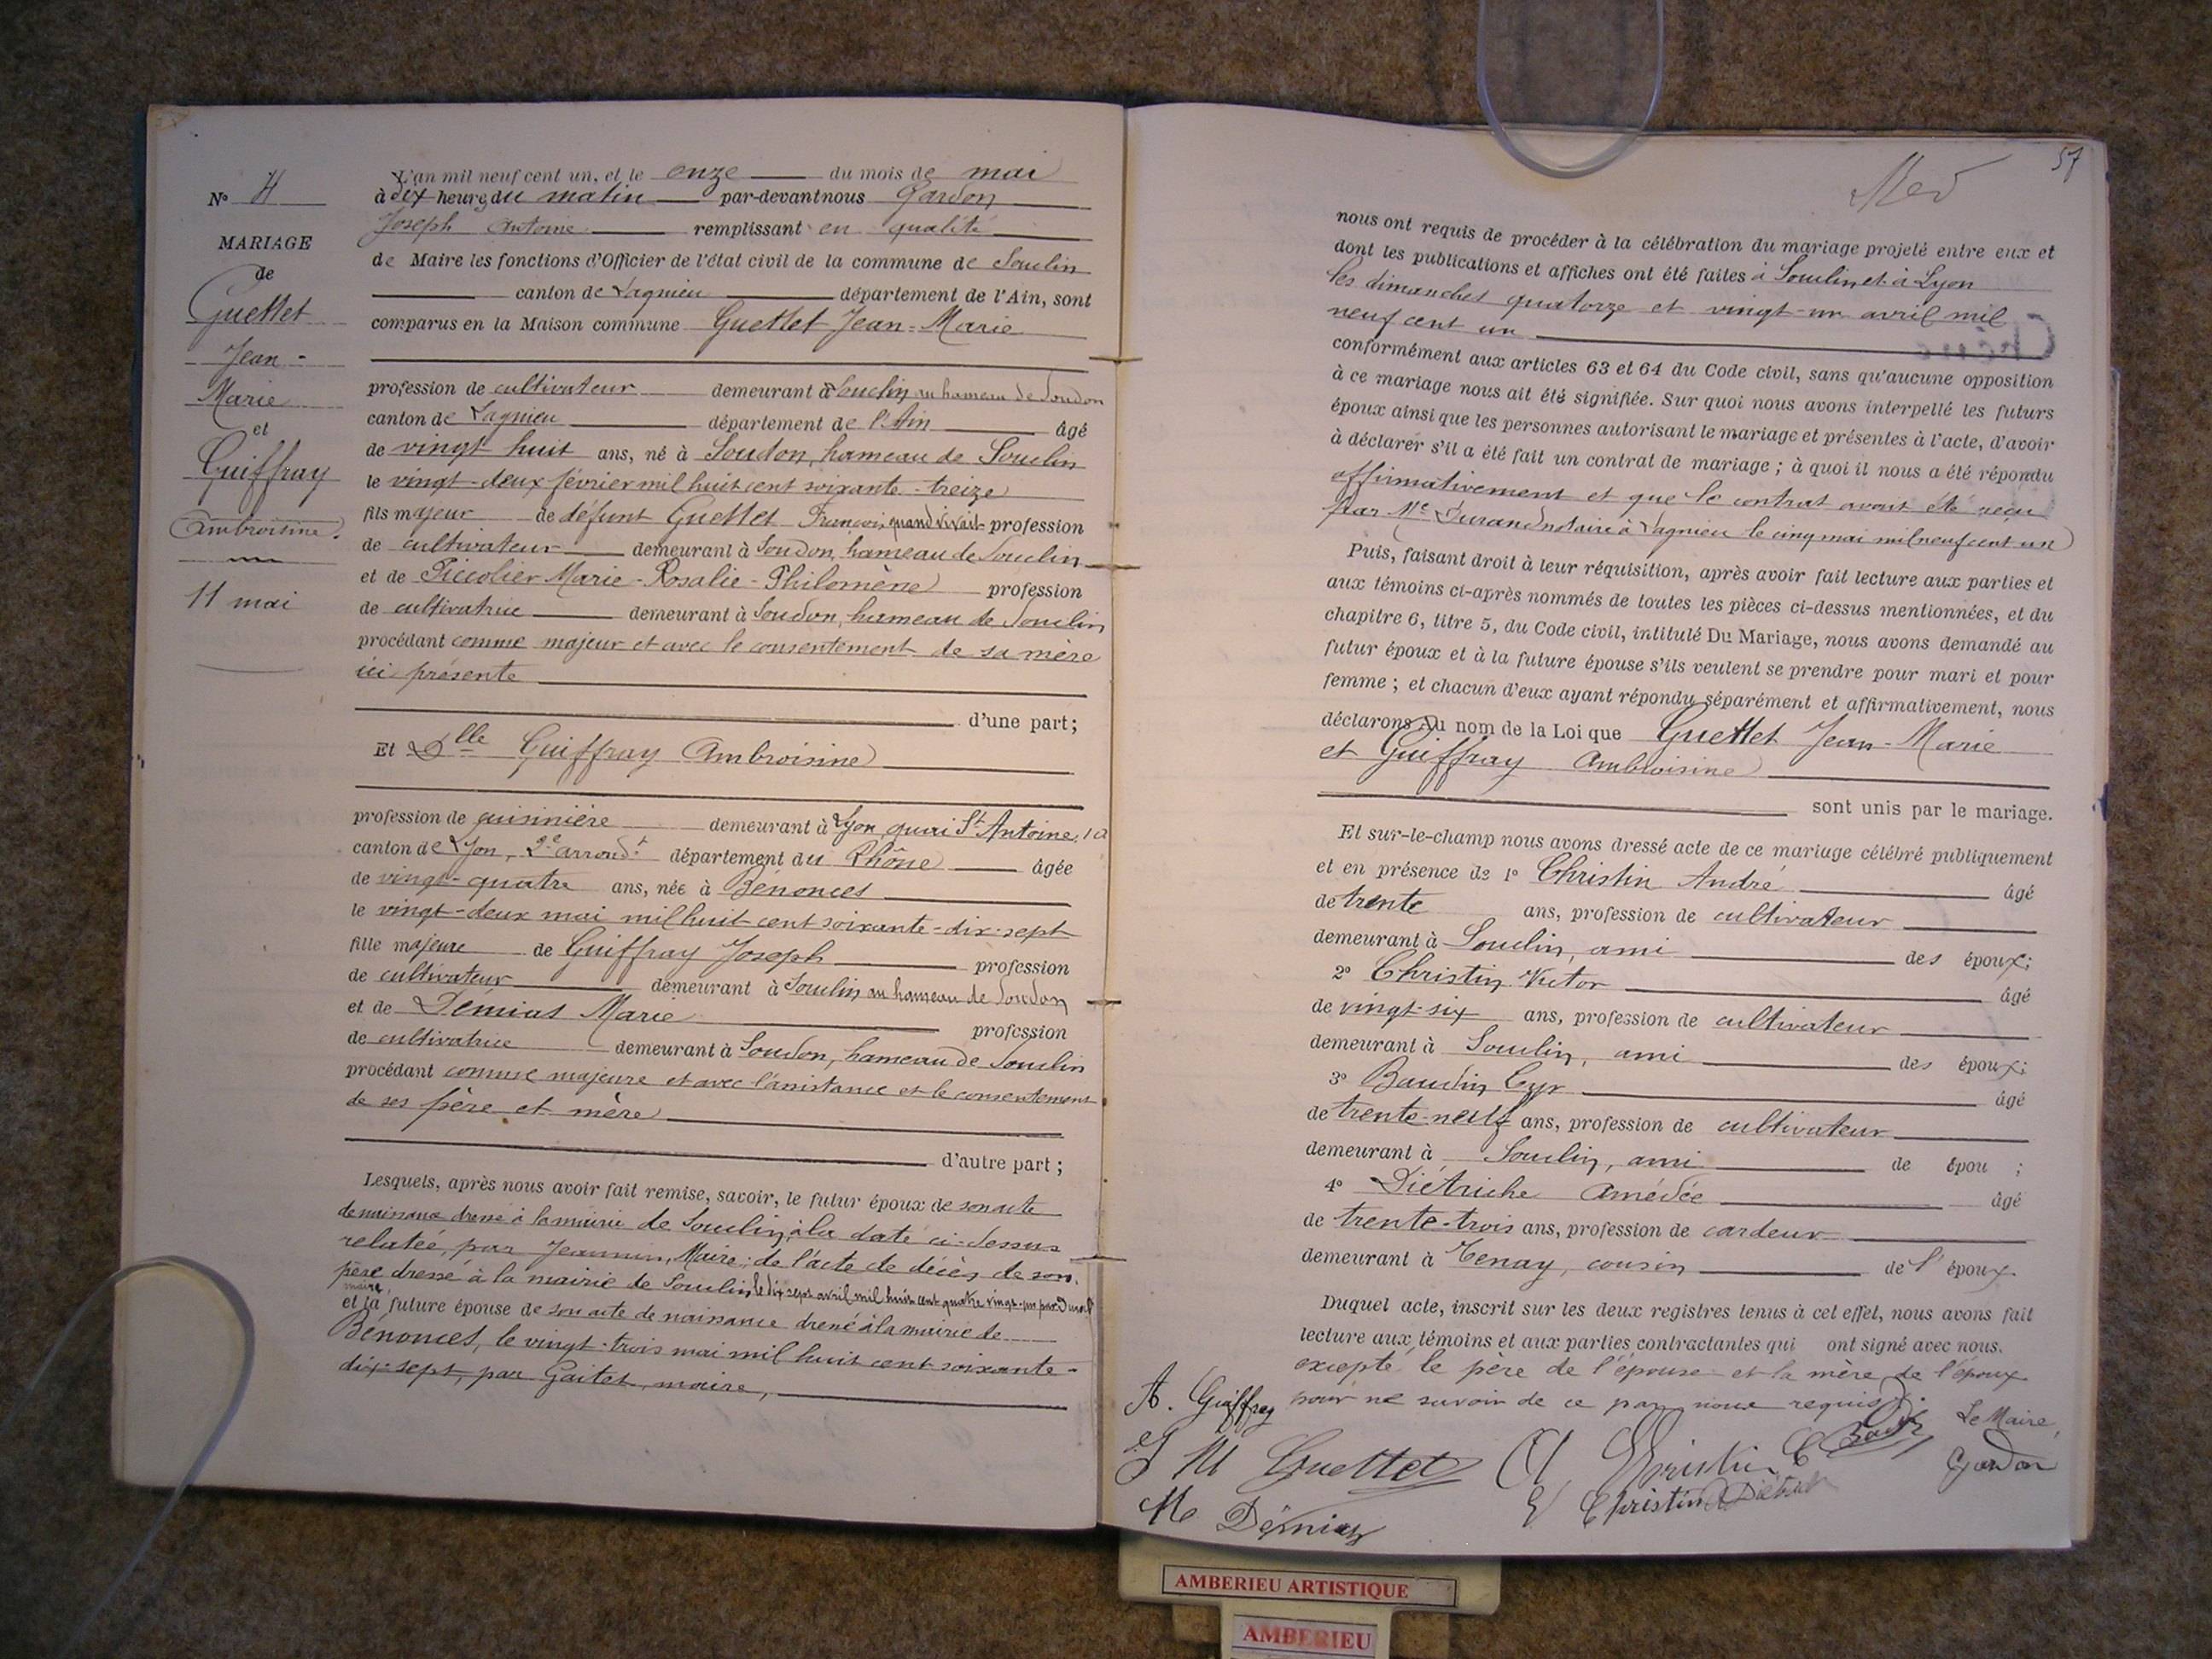 N° 4
MARIAGE
de
Guettet
Jean-
Marie
et
Guiffray
Ambroisine.
11 mai
L'an mil neuf cent un, et le onze du mois de mai
à dix heures du matin par-devant nous Gardon
Joseph Antoine remplissant en qualité
de Maire les fonctions d'Officier de l'état civil de la commune de Souclin
canton de Lagnieu département de l'Ain, sont
comparus en la Maison commune Guettet Jean-Marie
profession de cultivateur demeurant à Souclin au hameau de Soudon
canton de Lagnieu département de l'Ain âgé
de vingt huit ans, né à Soudon, hameau de Souclin
le vingt-deux février mil huit cent soixante-treize
fils majeur de défunt Guettet François, quand vivait profession
de cultivateur demeurant à Soudon, hameau de Souclin
et de Piccolier Marie-Rosalie-Philomène profession
de cultivatrice demeurant à Soudon, hameau de Souclin
procédant comme majeur et avec le consentement de sa mère
ici présente
d'une part;
Et Dlle Guiffray Ambroisine
profession de cuisinière demeurant à Lyon, quai St Antoine,
canton de Lyon, 2e arrondt département du Rhône âgée
de vingt-quatre ans, née à Bénonces
le vingt-deux mai mil huit cent soixante-dix-sept
fille majeure de Guiffray Joseph profession
de cultivateur demeurant à Souclin au hameau de Soudon
et de Démias Marie profession
de cultivatrice demeurant à Soudon, hameau de Souclin
procédant comme majeure et avec l'assistance et le consentement
de ses père et mère
d'autre part;
Lesquels, après nous avoir fait remise, savoir, le futur époux de son acte
de naissance dressé à la mairie de Souclin, à la date ci-dessus
relatée, par Jeannin, Maire; de l'acte de décès de son
père dressé à la mairie de Souclin, le dix sept avril mil huit cent quatre vingt-un par
maire
et la future épouse de son acte de naissance dressé à la mairie de
Bénonces, le vingt-trois mai mil huit cent soixante-
dix-sept, par Gaitet, maire,
57
nous ont requis de procéder à la célébration du mariage projeté entre eux et
dont les publications et affiches ont été faites à Souclin et à Lyon
les dimanches quatorze et vingt-un avril mil
neuf cent un
conformément aux articles 63 et 64 du Code civil, sans qu'aucune opposition
à ce mariage nous ait été signifiée. Sur quoi nous avons interpellé les futurs
époux ainsi que les personnes autorisant le mariage et présentes à l'acte, d'avoir
à déclarer s'il a été fait un contrat de mariage; à quoi il nous a été répondu
affirmativement et que le contrat avait été reçu
par Me Durand notaire à Lagnieu le cinq mai mil neuf cent un
Puis, faisant droit à leur réquisition, après avoir fait lecture aux parties et
aux témoins ci-après nommés de toutes les pièces ci-dessus mentionnées, et du
chapitre 6, titre 5, du Code civil, intitulé Du Mariage, nous avons demandé au
futur époux et à la future épouse s'ils veulent se prendre pour mari et pour
femme; et chacun d'eux ayant répondu séparément et affirmativement, nous
déclarons au nom de la Loi que Guettet Jean-Marie
et Guiffray Ambroisine
sont unis par le mariage.
Et sur-le-champ nous avons dressé acte de ce mariage célébré publiquement
et en présence de 1° Christin André âgé
de trente ans, profession de cultivateur
demeurant à Souclin, ami des époux;
2° Christin Victor âgé
de vingt-six ans, profession de cultivateur
demeurant à Souclin, ami des époux;
3° Baudin Cyr âgé
de trente-neuf ans, profession de cultivateur
demeurant à Souclin, ami de épou ;
4° Diétriche Amédée âgé
de trente-trois ans, profession de cardeur
demeurant à Tenay, cousin de l'époux.
Duquel acte, inscrit sur les deux registres tenus à cet effet, nous avons fait
lecture aux témoins et aux parties contractantes qui ont signé avec nous.
excepté le père de l'épouse et la mère de l'époux
pour ne savoir de ce par nous requis.
A. Giuffray
Le Maire,
J M Guettet
A Christin C Baudin
Gardon
Me Démias
V Christin A Diétrich
AMBERIEU ARTISTIQUE
AMBERIEU